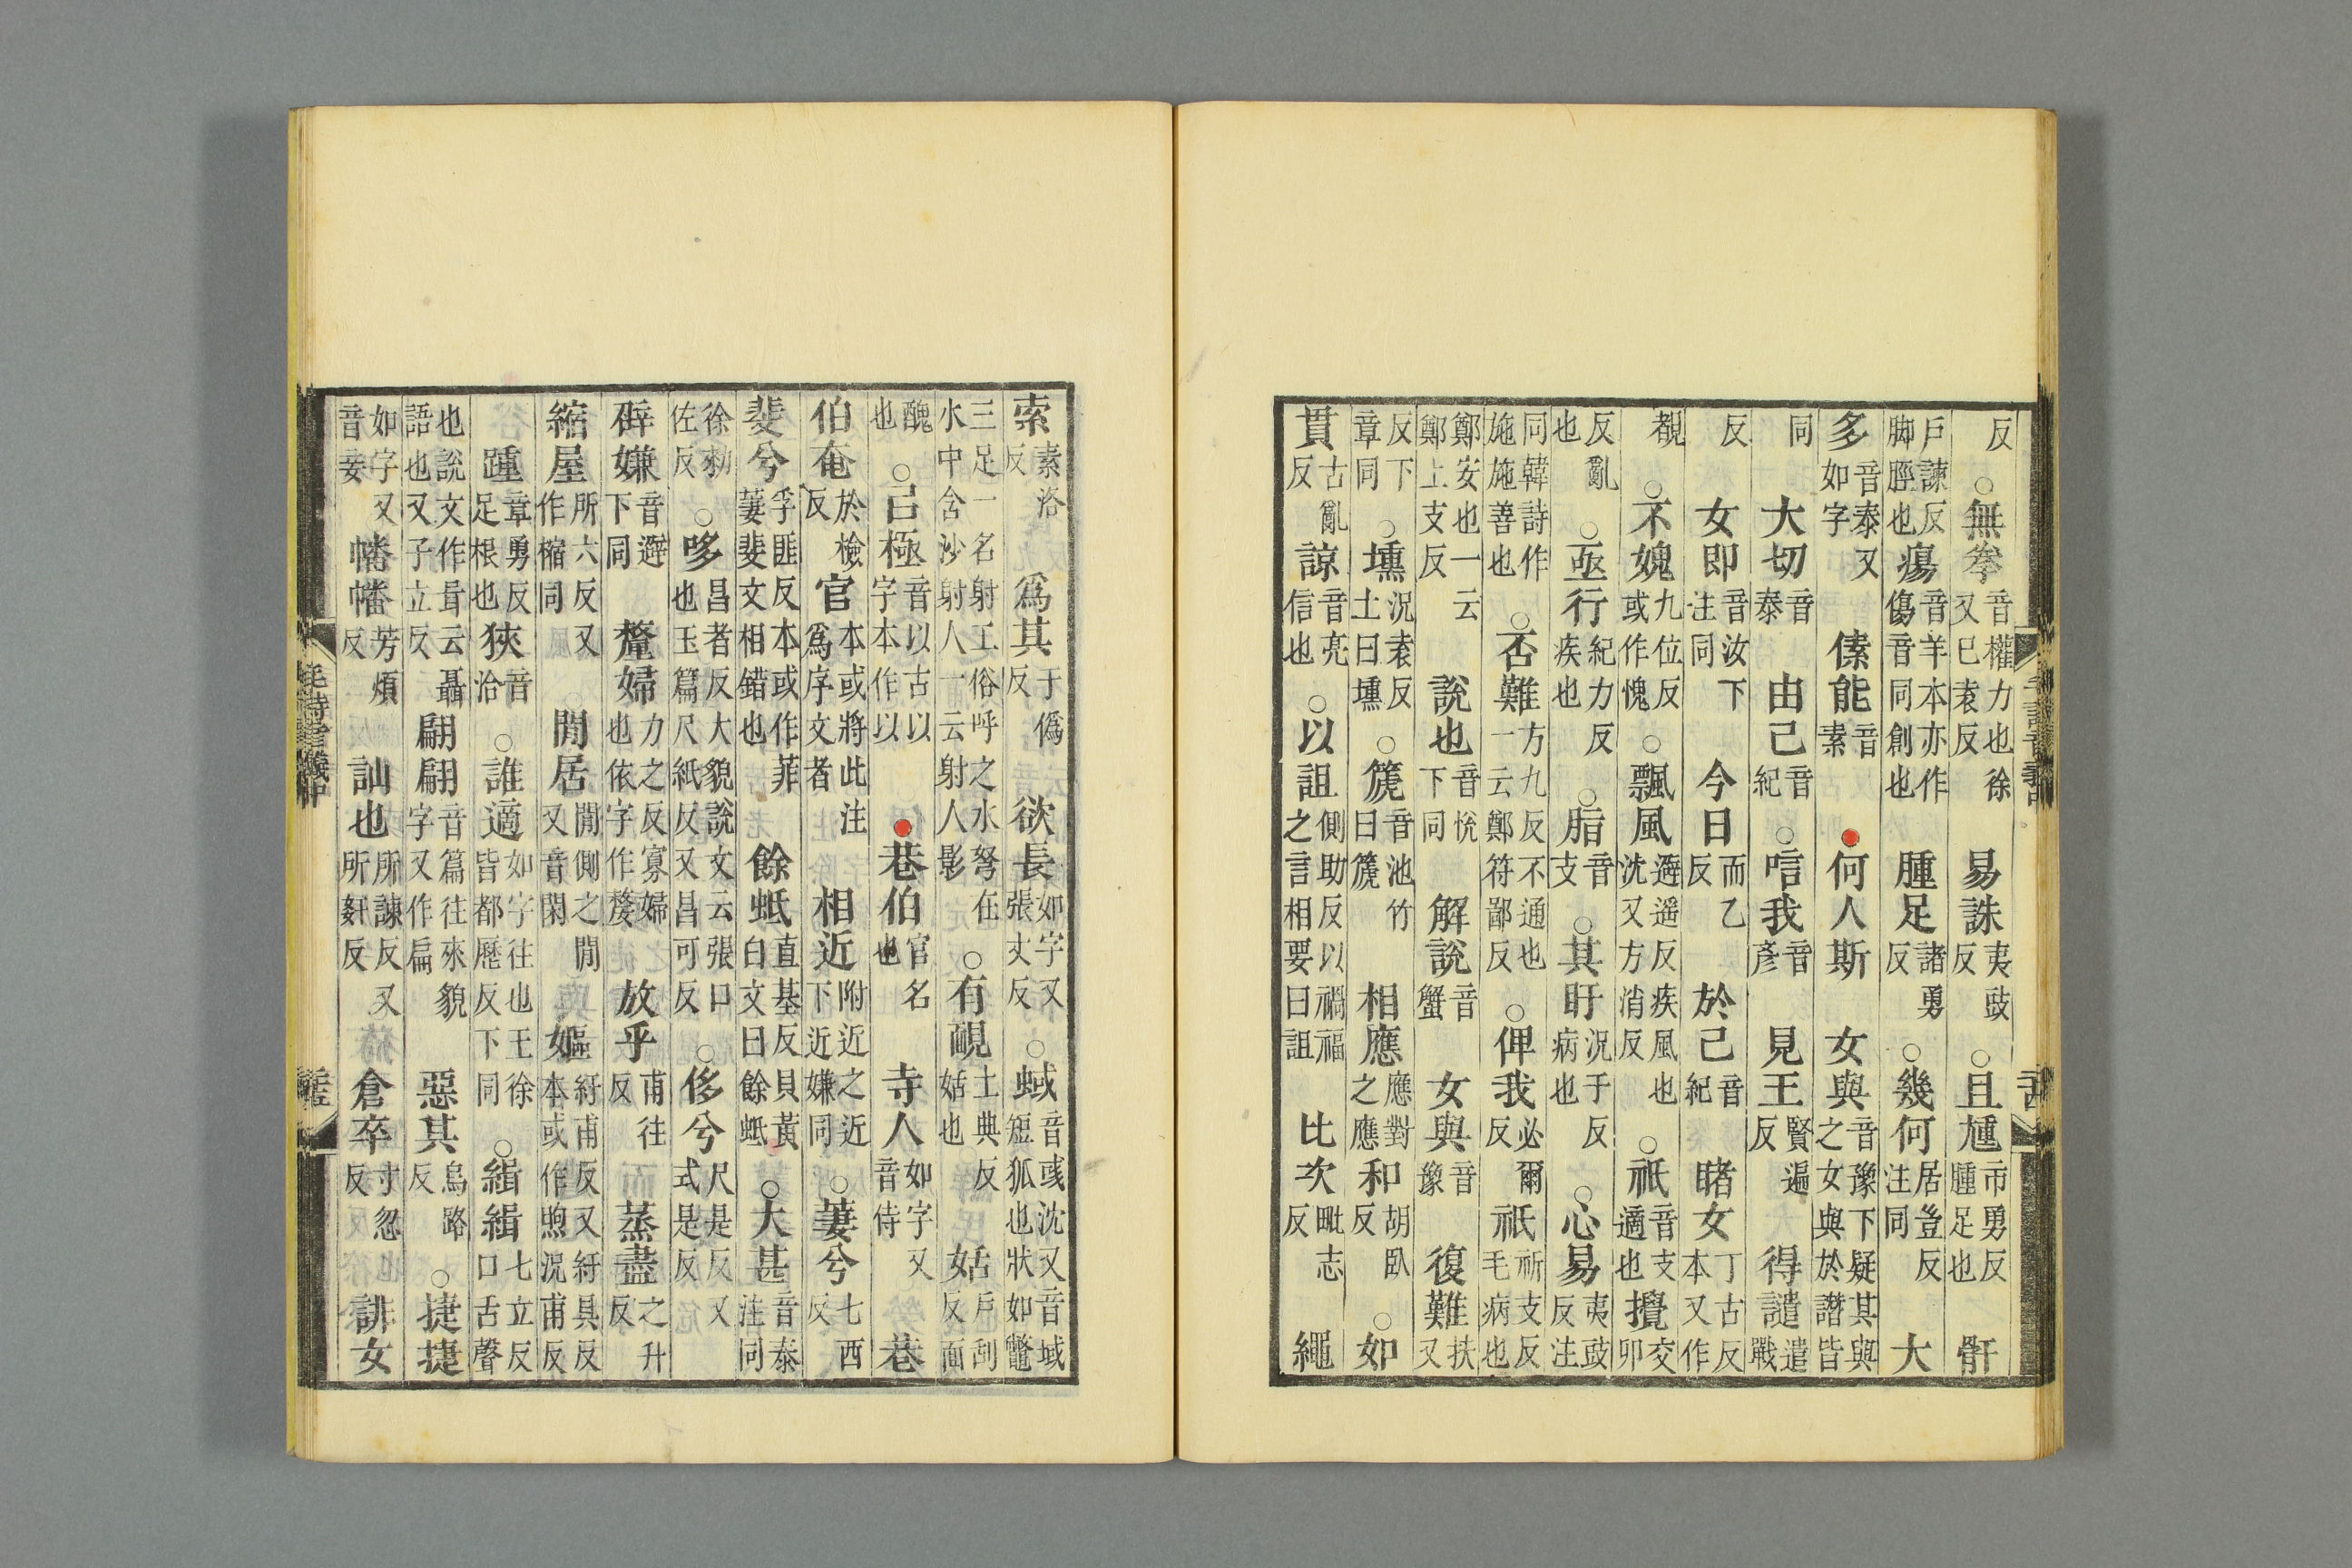 反○無拳音權力也徐又已袁反易誅夷豉反○且尰市勇反腫足也骭
戶諫反脚脛也瘍音羊本亦作傷音同創也腫足諸勇反○幾何居豈反注同大
多音泰又如字傃能音素●何人斯女與音豫下疑其與之女與於譖皆
同大切音泰由己音紀○唁我音彥見王賢遍反得譴遣戰
反女即音汝下注同今日而乙反於己音紀睹女丁古反本又作
覩○不媿九位反或作愧○飄風避遥反疾風也沈又方消反○祇音支適也攪交卯
反亂也○亟行紀力反疾也○脂音支○其盱況于反病也○心易夷豉反注
同韓詩作施施善也○否難方九反不通也一云鄭符鄙反○俾我必爾反祇祈支反毛病也
鄭安也一云鄭上支反說也音悅下同解說音蟹女與音豫復難扶又
反下章同○壎況袁反土曰壎○篪音池竹曰篪相應應對之應和胡臥反○如
貫古亂反諒音亮信也○以詛側助反以禍福之言相要曰詛比次毗志反繩
索素洛反爲其于僞反欲長如字又張丈反○蜮音彧沈又音域短狐也狀如鼈
三足一名射工俗呼之水弩在水中含沙射人一云射人影○有靦土典反姡也姡戶刮反面
醜也○㠯極音以古以字本作以●巷伯官名也寺人如字又音侍巷
伯奄於檢反官本或將此注爲序文者相近附近之近下近嫌同○萋兮七西反
斐兮孚匪反本或作菲萋斐文相錯也餘蚳直基反貝黃白文曰餘蚳○大甚音泰注同
徐勑佐反○哆昌者反大貌說文云張口也玉篇尺紙反又昌可反○侈兮尺是反又式是反
辟嫌音避下同釐婦力之反寡婦也依字作嫠放乎甫往反蒸盡之升反
縮屋所六反又作樎同閒居閒側之閒又音閑嫗紆甫反又紆具反本或作煦況甫反
踵章勇反足根也狹音洽○誰適如字往也王徐皆都歷反下同○緝緝七立反口舌聲
也說文作咠云聶語也又子立反翩翩音篇往來貌字又作扁惡其烏路反○捷捷
如字又音妾幡幡芳煩反訕也所諫反又所姦反倉卒寸忽反誹女
毛詩音義中